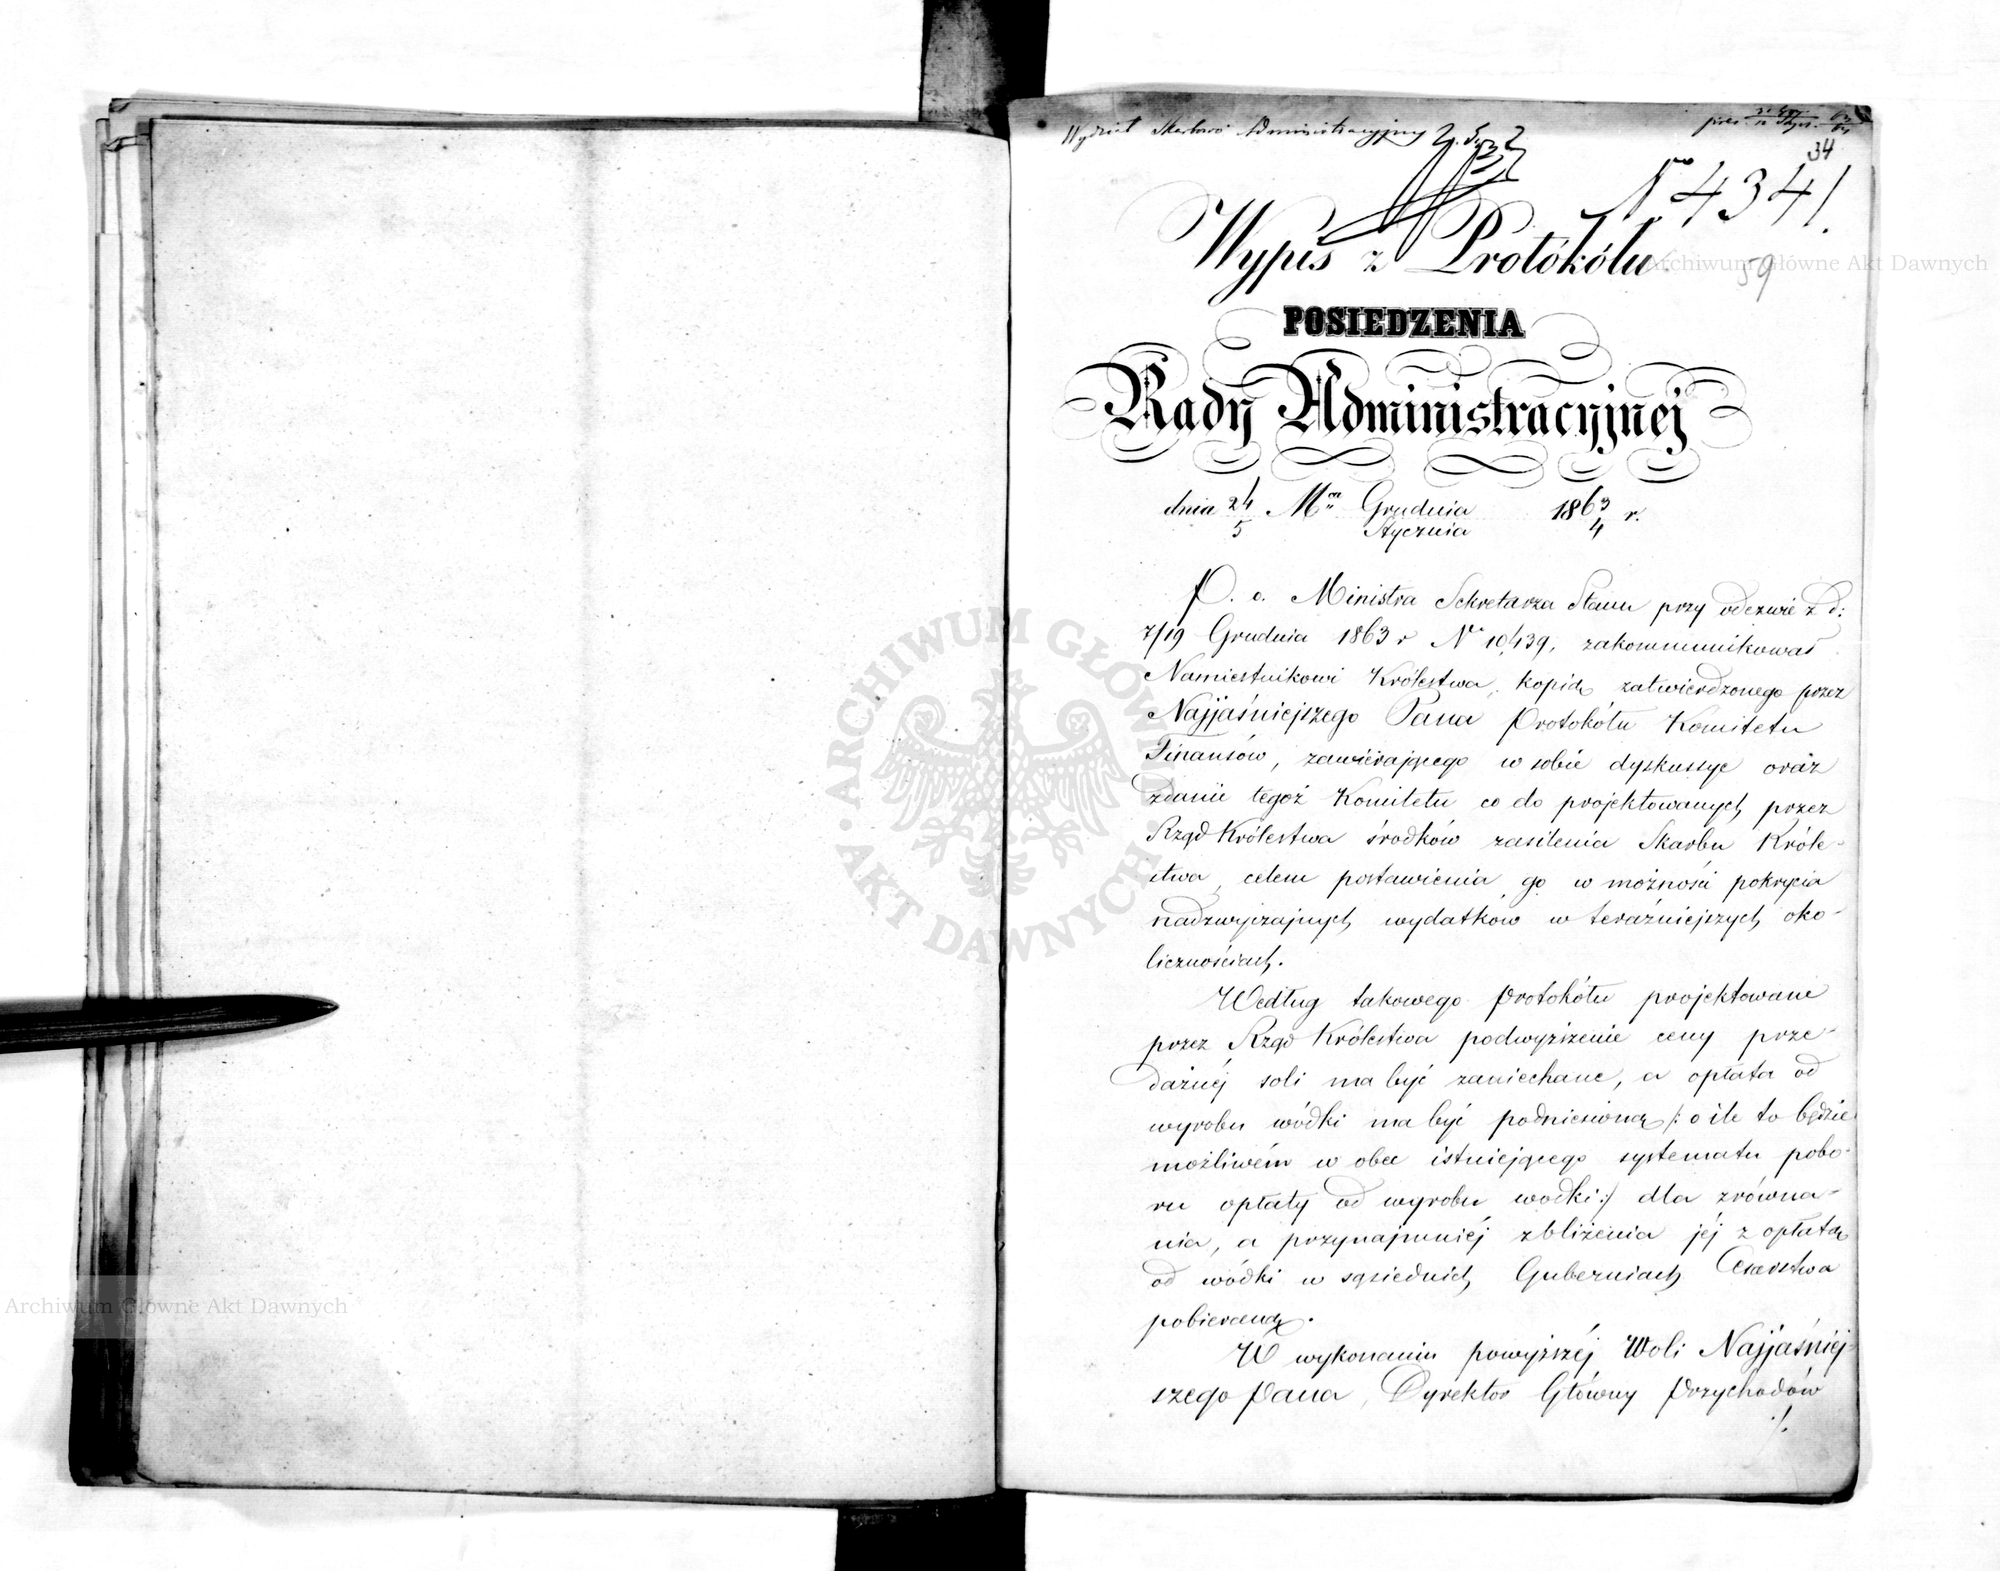 Wydział Skarbowo Administracyjny
34
Nro 4341.
Wypis z Protokółu
59
POSIEDZENIA
Rady Administracyjnej
dnia 24/5 Mca Grudnia/Stycznia 1863/4 r.
P. o. Ministra Sekretarza Stanu przy odezwie z d:
7/19 Grudnia 1863 r Nr 10,439, zakommunikował
Namiestnikowi Królestwa, kopią zatwierdzonego przez
Najjaśniejszego Pana Protokółu Komitetu
Finansów, zawiérającego w sobie dyskussye oraz
zdanie tegoż Komitetu co do projektowanych przez
Rząd Królestwa środków zasilenia Skarbu Króle-
stwa, celem postawienia go w możności pokrycia
nadzwyczajnych wydatków w teraźniejszych oko-
licznościach.
Według takowego Protokółu projektowane
przez Rząd Królestwa podwyższenie ceny prze-
dażnéj soli ma być zaniechane, a opłata od
wyrobu wódki ma być podniesioną /: o ile to będzie
możliwém w obec istniejącego systematu pobo-
ru opłaty od wyrobu wódki :/ dla zrówna-
nia, a przynajmniéj zbliżenia jéj z opłatą
od wódki w sąsiednich Guberniach Cesarstwa
pobieraną.
W wykonaniu powyższéj Woli Najjaśniej-
szego Pana, Dyrektor Główny Przychodów
./.
ARCHIWUM GŁÓWNE AKT DAWNYCH
Archiwum Główne Akt Dawnych
Archiwum Główne Akt Dawnych